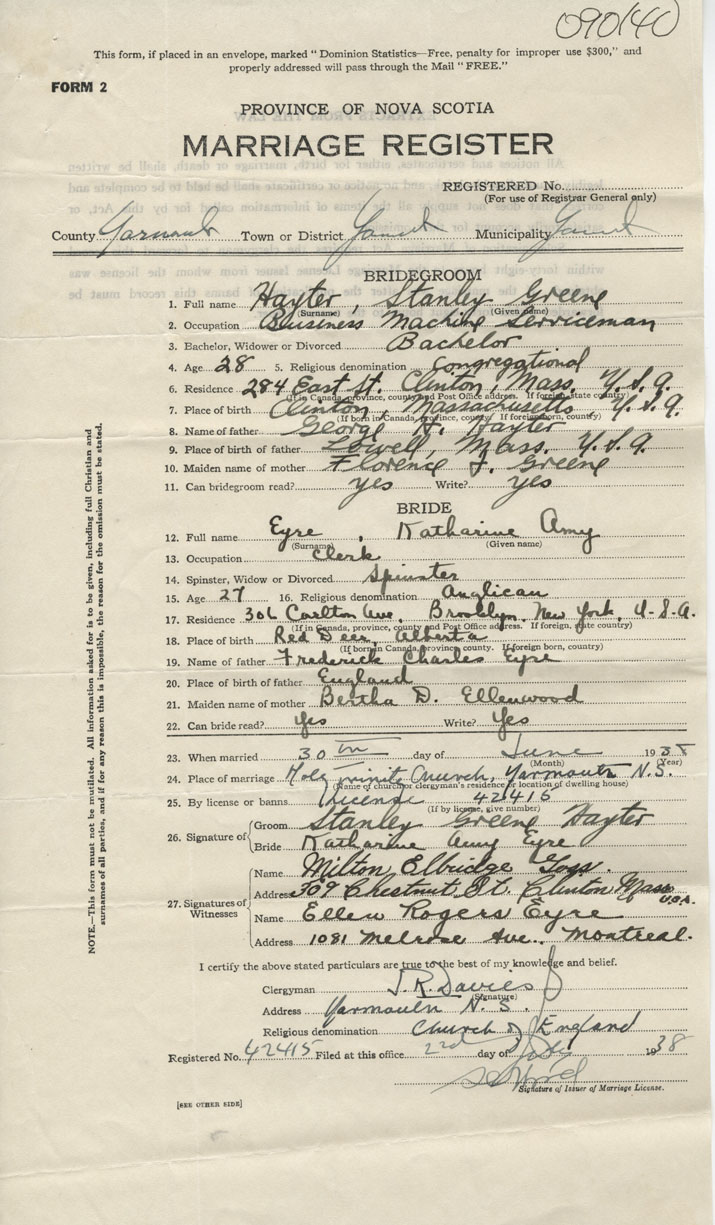 090140
This form, if placed in an envelope, marked "Dominion Statistics—Free. penalty for improper use $300," and
properly addressed will pass through the Mail "FREE."
FORM 2
PROVINCE OF NOVA SCOTIA
MARRIAGE REGISTER
REGISTERED No.
(For use of Registrar General only)
County Yarmouth Town or District Yarmouth Municipality Yarmouth
BRIDEGROOM
1. Full name Hayter, Stanley Greene
(Surname) (Given name)
2. Occupation Business Machine Serviceman
3. Bachelor, Widower or Divorced Bachelor
4. Age 28 5. Religious denomination Congregational
6. Residence 284 East St. Clinton, Mass. U.S.A.
(If in Canada, province, county and Post Office address. If foreign, state country)
7. Place of birth Clinton, Massachusetts U.S.A.
(If born in Canada, province, county. If foreign born, country)
8. Name of father George H. Hayter
9. Place of birth of father Lowell, Mass. U.S.A.
10. Maiden name of mother Florence J. Greene
11. Can bridegroom read? yes Write? yes
BRIDE
12. Full name Eyre, Katharine Amy
(Surname) (Given name)
13. Occupation Clerk
14. Spinster, Widow or Divorced Spinster
15. Age 27 16. Religious denomination Anglican
17. Residence 306 Carlton Ave, Brooklyn, New York, U.S.A.
(If in Canada, province, county and Post Office address. If foreign, state country)
18. Place of birth Red Deer, Alberta
(If born in Canada, province, county. If foreign born, country)
19. Name of father Frederick Charles Eyre
20. Place of birth of father England
21. Maiden name of mother Bertha D. Ellenwood
22. Can bride read? Yes Write? Yes
23. When married 30th day of June 1938
(Month) (Year)
24. Place of marriage Holy Trinity Church, Yarmouth N.S.
(Name of church or clergyman's residence or location of dwelling house)
25. By license or banns License 42415
(If by license, give number)
26. Signature of
Groom Stanley Greene Hayter
Bride Katharine Amy Eyre
27. Signatures of Witnesses
Name Milton Elbridge Goss.
Address 309 Chestnut St. Clinton Mass U.S.A.
Name Ellen Rogers Eyre
Address 1081 Melrose Ave., Montreal.
I certify the above stated particulars are true to the best of my knowledge and belief.
Clergyman J.R. Davies
(Signature)
Address Yarmouth N.S.
Religious denomination Church of England
Registered No. 42415 Filed at this office 2nd day of July 1938
Signature of Issuer of Marriage License.
[SEE OTHER SIDE]
NOTE.—This form must not be mutilated. All information asked for is to be given, including full Christian and
surnames of all parties, and if for any reason this is impossible, the reason for the omission must be stated.